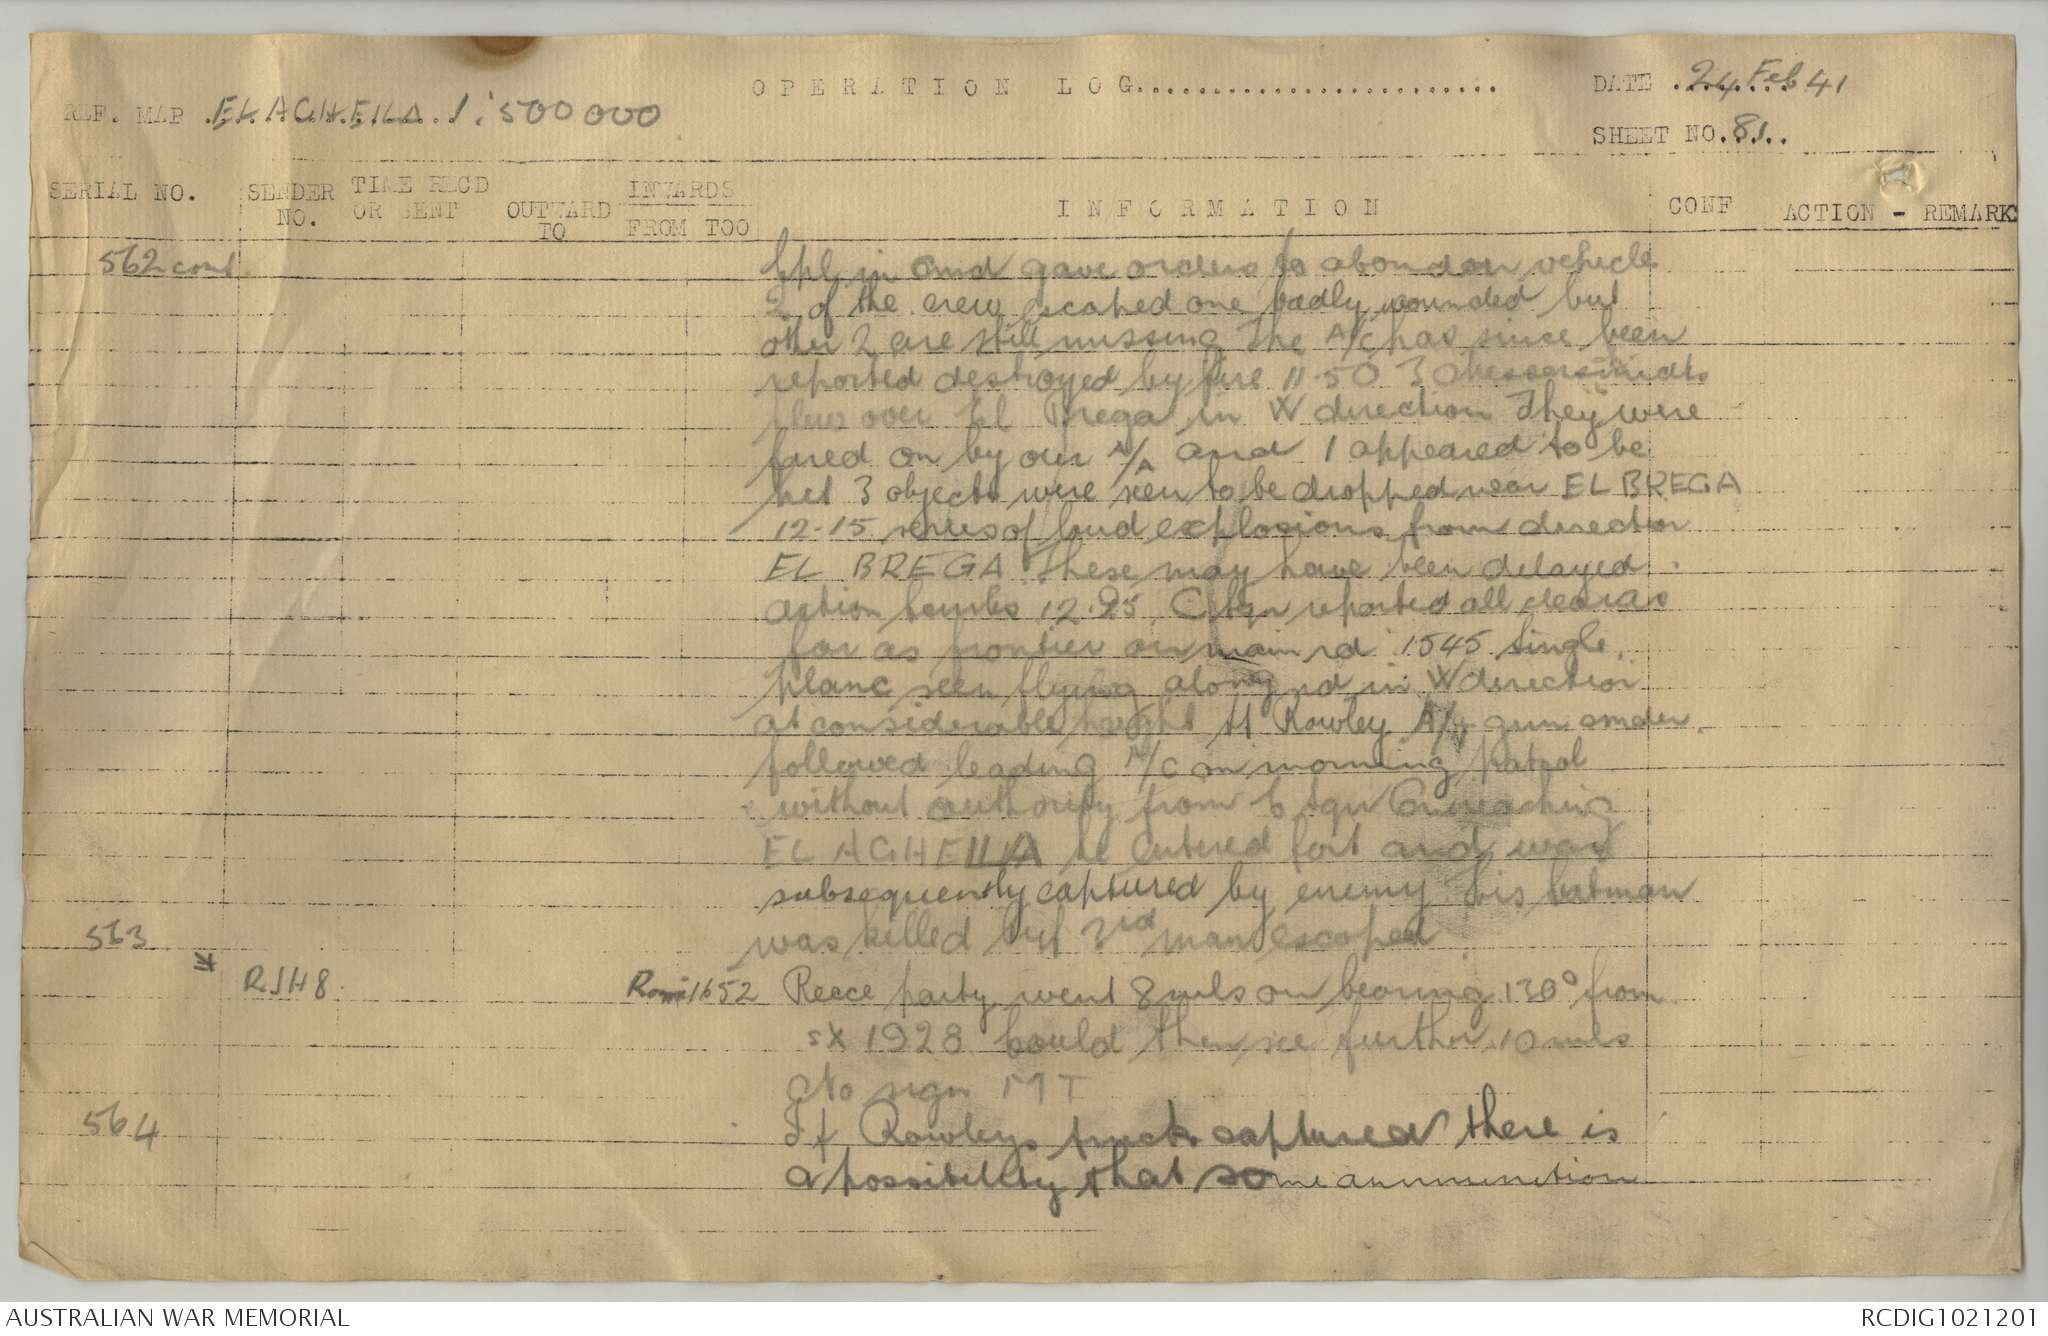 OPERATION LOG...........................
DATE 24 Feb 41
REF. MAP EL AGHEILA 1:500000
SHEET NO. 81
SERIAL NO.
SENDER NO.
TIME RECD OR SENT
OUTWARD TO
INWARDS
FROM TOO
INFORMATION
CONF
ACTION - REMARKS
562 cont
Cpl in cmd gave orders to abondon vehicle
2 of the crew escaped one badly wounded but
other 2 are still missing The A/C has since been
reported destroyed by fire 11.50 3 Messersmidts
flew over El Brega in W direction They were
fired on by our A/A and 1 appeared to be
hit 3 objects were seen to be dropped near EL BREGA
12-15 series of loud explosions from direction
EL BREGA These may have been delayed
action bombs 12.25 C Sqn reported all clear as
far as frontier on main rd 1545 Single
plane seen flying along rd in W direction
at considerable height Lt Rowley A/T gun cmder
followed leading A/C on morning patrol
without authority from C Sqn On reaching
EL AGHEILLA he entered fort and was
subsequently captured by enemy His batman
563
was killed but 3rd man escaped
RJH8
1652
Recce party went 8 mls on bearing 130° from
SX 1928 Could then see further 10 mls
No sign MT
564
If Rowleys truck captured there is
a possibility that some ammunition
AUSTRALIAN WAR MEMORIAL
RCDIG1021201